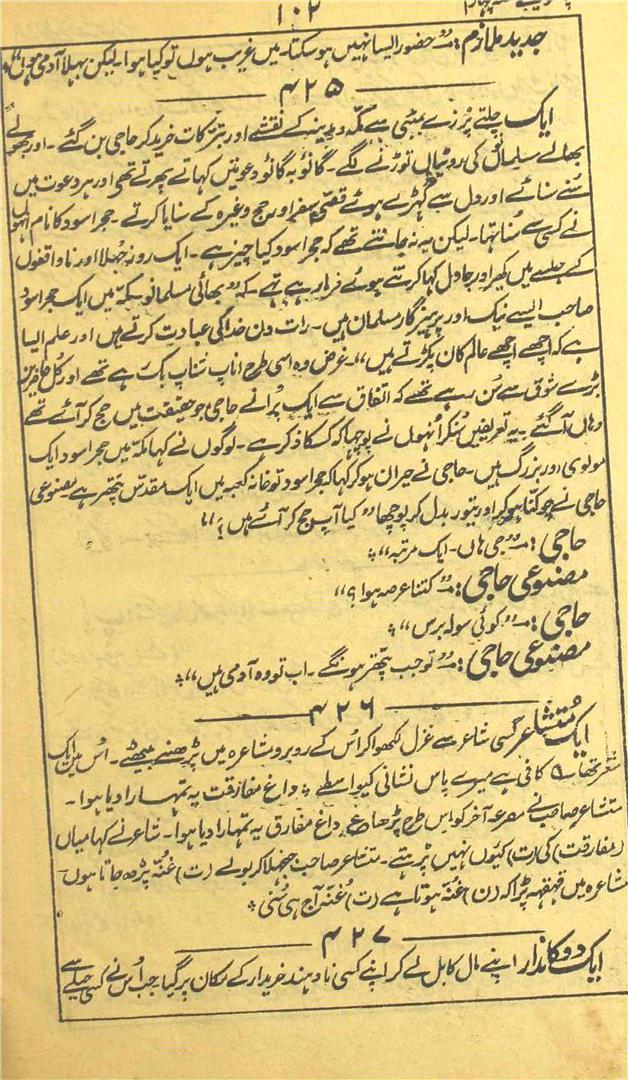 ۱۰۲
جدید ملازم :۔ "حضور ایسا نہیں ہو سکتا۔ میں غریب ہوں تو کیا ہوا۔ لیکن بھلا آدمی ہوں"
۴۲۵
ایک چلتے پرزے بمبئی سے مکہ و مدینہ کے نقشے اور تبرکات خرید کر حاجی بن گئے۔ اور بھولے
بھالے مسلمانوں کی روٹیاں توڑنے لگے۔ گاؤں بہ گاؤں دعوتیں کہاتے پھرتے تھے اور ہر دعوت میں
سُنے سنائے اور دل سے گھڑے ہوئے قصے سفر اور حج وغیرہ کے سنایا کرتے۔ حجر اسود کا نام انہوں
نے کسی سے سُنا تھا۔ لیکن یہ نہ جانتے تھے کہ حجر اسود کیا چیز ہے۔ ایک روز جُہلا اور ناواقفوں
کے جلسے میں کھیر اور چاول کہا کرتے ہوئے فرما رہے تھے۔ کہ "بھائی مسلمانو مکہ میں ایک حجر اسود
صاحب ایسے نیک اور پرہیزگار مسلمان ہیں۔ رات دن خدا کی عبادت کرتے ہیں اور علم ایسا
ہے کہ اچھے اچھے عالم کان پکڑتے ہیں"۔ غرض وہ اسی طرح اناپ شناپ بک رہے تھے اور کُل حاضرین
بڑے شوق سے سُن رہے تھے کہ اتفاق سے ایک پُرانے حاجی جو حقیقت میں حج کر آئے تھے
وہاں آ گئے۔ یہ تعریفیں سُنکر اُنہوں نے پوچھا کہ کسکا ذکر ہے۔ لوگوں نے کہا مکہ میں حجر اسود ایک
مولوی اور بزرگ ہیں۔ حاجی نے حیران ہو کر کہا کہ حجر اسود تو خانہ کعبہ میں ایک مقدس پتھر ہے مصنوعی
حاجی نے چوکنّا ہو کر اور تیور بدل کر پوچھا "کیا آپ حج کر آئے ہیں؟"
حاجی :۔ "جی ہاں۔ ایک مرتبہ"
مصنوعی حاجی :۔ "کتنا عرصہ ہوا؟"
حاجی :۔ "کوئی سولہ برس"
مصنوعی حاجی :۔ "تو جب پتھر ہونگے۔ اب تو وہ آدمی ہیں"
۴۲۶
ایک متشاعر کسی شاعر سے غزل لکھوا کر اُس کے روبرو مشاعرہ میں پڑھنے بیٹھے۔ اُس میں ایک
شعر تھا۔ ؎ کافی ہے میرے پاس نشانی کیواسطے ؛ داغ مفارقت یہ تمہارا دیا ہوا۔
متشاعر صاحب نے مصرعہ آخر کو اس طرح پڑھا ع داغ مفارق یہ تمہارا دیا ہوا۔ شاعر نے کہا میاں
(مفارقت) کی (ت) کیوں نہیں پڑہتے۔ متشاعر صاحب جھنجھلا کر بولے (ت) غنّہ پڑھ جاتا ہوں۔
مشاعرہ میں قہقہہ پڑا کہ (ن) غنّہ ہوتا ہے (ت) غنّہ آج ہی سُنی
۴۲۷
ایک دوکاندار اپنے مال کا بل لے کر اپنے کسی نادہند خریدار کے مکان پر گیا۔ جب اُس نے کسی حیلے سے